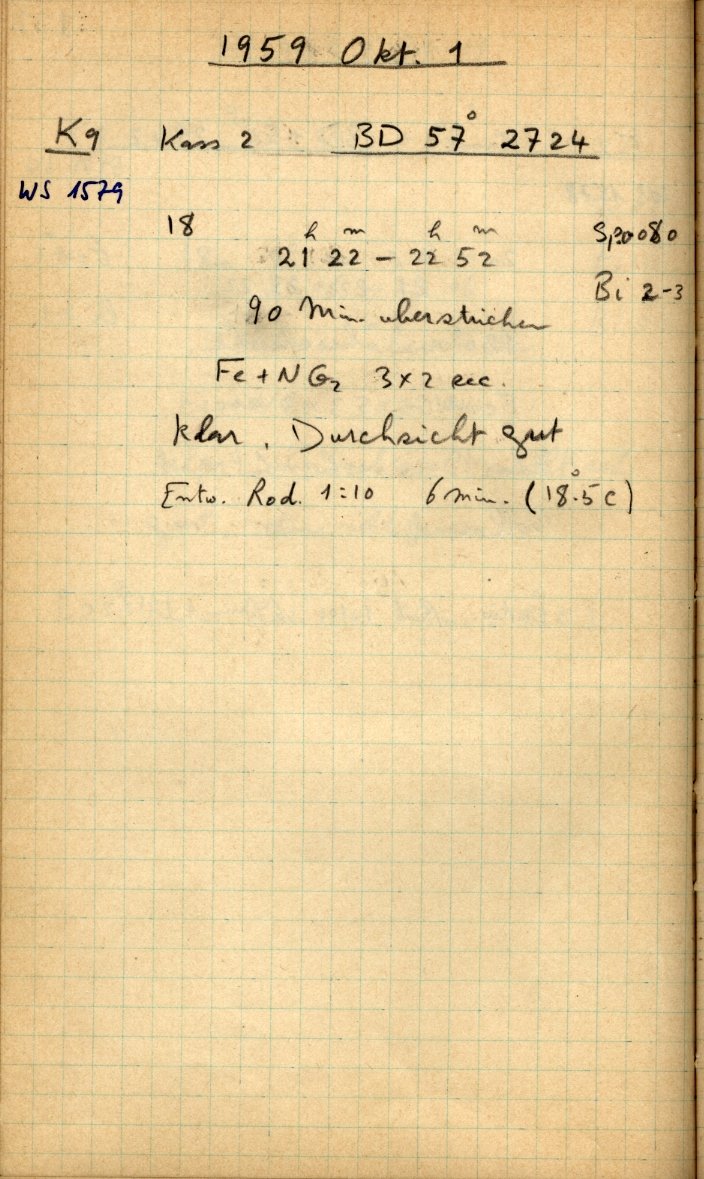 1959 Okt. 1
K9 Kass 2 BD 57° 2724
WS 1579
18 21h 22m - 22h 52m Sp 0080
90 Min. uberstrichen Bi 2-3
Fe + N 3x2 sec.
klar. Durchsicht gut
Entw. Rod. 1:10 6 min. (18°.5 C)